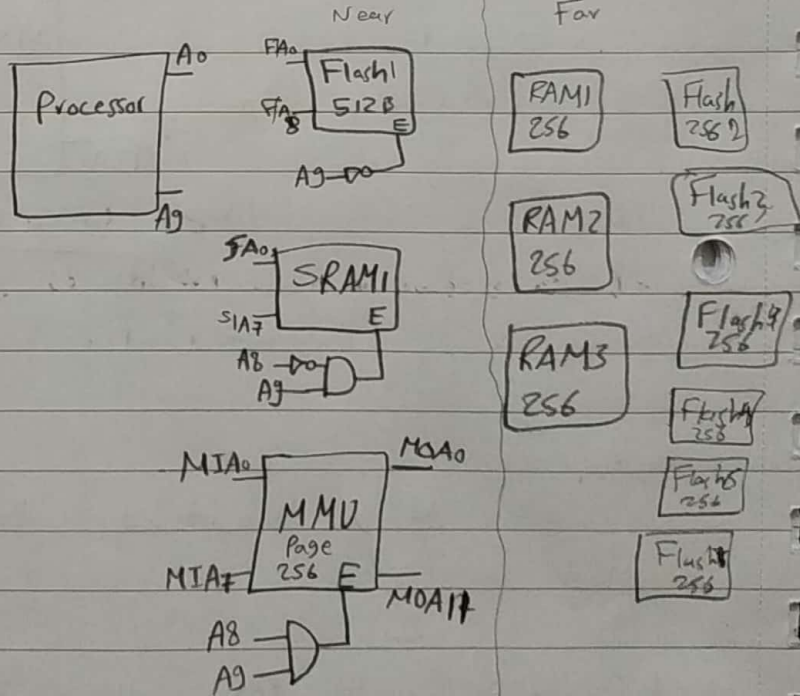 Near
Far
Processor
A0
A9
FA0
Flash1
512B
E
A9
SA0
SRAM1
S1A7
E
A8
A9
MIA0
MOA0
MMU
Page
256
E
MIA7
A8
A9
RAM1
256
RAM2
256
RAM3
256
Flash
256 2
Flash3
256
Flash4
256
256
Flash
256
Flash
256